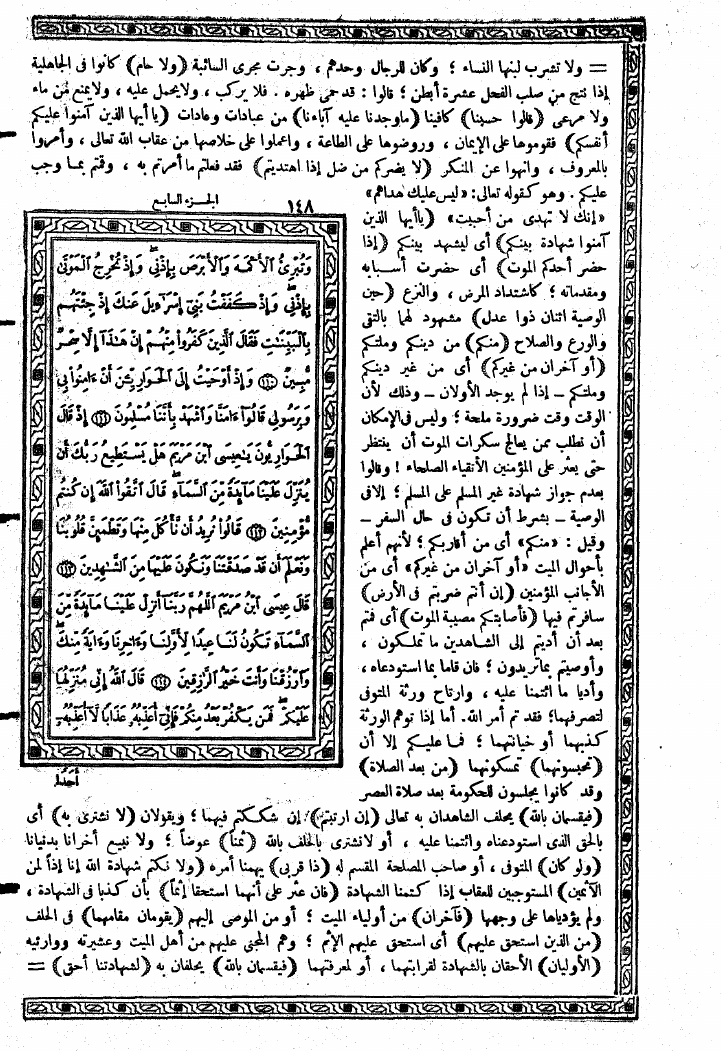 = ولا تشرب لبنها النساء ؛ وكان للرجال وحدهم ، وجرت مجرى السائبة (ولا حام) كانوا فى الجاهلية
إذا نتج من صلب الفحل عشرة أبطن ؛ قالوا : قد حمى ظهره . فلا يركب ، ولا يحمل عليه ، ولا يمنع من ماء
ولا مرعى (قالوا حسبنا) كافينا (ماوجدنا عليه آباءنا) من عبادات وعادات (يا أيها الذين آمنوا عليكم
أنفسكم) فقوموها على الإيمان ، وروضوها على الطاعة ، واعملوا على خلاصها من عقاب الله تعالى ، وأمروا
بالمعروف ، وانهوا عن المنكر (لا يضركم من ضل إذا اهتديتم) فقد فعلتم ما أمرتم به ، وقمتم بما وجب
عليكم . وهو كقوله تعالى: «ليس عليك هداهم»
«إنك لا تهدى من أحببت» (ياأيها الذين
آمنوا شهادة بينكم) أى ليشهد بينكم (إذا
حضر أحدكم الموت) أى حضرت أسبابه
ومقدماته ؛ كاشتداد المرض ، والنزع (حين
الوصية اثنان ذوا عدل) مشهود لهما بالتقى
والورع والصلاح (منكم) من دينكم وملتكم
(أو آخران من غيركم) أى من غير دينكم
وملتكم – إذا لم يوجد الأولان – وذلك لأن
الوقت وقت ضرورة ملحة ؛ وليس فى الإمكان
أن نطلب ممن يعالج سكرات الموت أن ينتظر
حتى يعثر على المؤمنين الأتقياء الصلحاء ! وقالوا
بعدم جواز شهادة غير المسلم على المسلم ؛ إلا فى
الوصية – بشرط أن تكون فى حال السفر –
وقيل : «منكم» أى من أقاربكم ؛ لأنهم أعلم
بأحوال الميت «أو آخران من غيركم» أى من
الأجانب المؤمنين (إن أنتم ضربتم فى الأرض)
سافرتم فيها (فأصابتكم مصيبة الموت) أى فتم
بعد أن أديتم إلى الشاهدين ما تملكون ،
وأوصيتم بما تريدون ؛ فإن قاما بما استودعاه ،
وأديا ما ائتمنا عليه ، وارتاح ورثة المتوفى
لتصرفهما؛ فقد تم أمر الله. أما إذا توهم الورثة
كذبهما أو خيانتهما ؛ فما عليكم إلا أن
(تحبسونهما) تمسكونهما (من بعد الصلاة)
وقد كانوا يجلسون للحكومة بعد صلاة العصر
(فيقسمان بالله) يحلف الشاهدان به تعالى (إن ارتبتم) إن شككتم فيهما ؛ ويقولان (لا نشترى به) أى
بالحق الذى استودعناه وائتمنا عليه ، أو لا نشترى بالحلف بالله (ثمناً) عوضاً ؛ ولا نبيع أخرانا بدنيانا
(ولو كان) المتوفى ، أو صاحب المصلحة المقسم له (ذا قربى) يهمنا أمره (ولا نكتم شهادة الله إنا إذاً لمن
الآثمين) المستوجبين للعقاب إذا كتمنا الشهادة (فإن عثر على أنهما استحقا إثماً) بأن كذبا فى الشهادة ،
ولم يؤدياها على وجهها (فآخران) من أولياء الميت ؛ أو من الموصى إليهم (يقومان مقامهما) فى الحلف
(من الذين استحق عليهم) أى استحق عليهم الإثم ؛ وهم المجنى عليهم من أهل الميت وعشيرته ووارثيه
(الأوليان) الأحقان بالشهادة لقرابتهما ، أو لمعرفتهما (فيقسمان بالله) يحلفان به (لشهادتنا أحق) =
١٤٨ الجزء السابع
وَتُبْرِئُ ٱلْأَكْمَهَ وَٱلْأَبْرَصَ بِإِذْنِى وَإِذْ تُخْرِجُ ٱلْمَوْتَىٰ
بِإِذْنِى وَإِذْ كَفَفْتُ بَنِىٓ إِسْرَٰٓءِيلَ عَنكَ إِذْ جِئْتَهُم
بِٱلْبَيِّنَٰتِ فَقَالَ ٱلَّذِينَ كَفَرُوا۟ مِنْهُمْ إِنْ هَٰذَآ إِلَّا سِحْرٌ
مُّبِينٌ ﴿١١٠﴾ وَإِذْ أَوْحَيْتُ إِلَى ٱلْحَوَارِيِّۦنَ أَنْ ءَامِنُوا۟ بِى
وَبِرَسُولِى قَالُوٓا۟ ءَامَنَّا وَٱشْهَدْ بِأَنَّنَا مُسْلِمُونَ ﴿١١١﴾ إِذْ قَالَ
ٱلْحَوَارِيُّونَ يَٰعِيسَى ٱبْنَ مَرْيَمَ هَلْ يَسْتَطِيعُ رَبُّكَ أَن
يُنَزِّلَ عَلَيْنَا مَآئِدَةً مِّنَ ٱلسَّمَآءِ قَالَ ٱتَّقُوا۟ ٱللَّهَ إِن كُنتُم
مُّؤْمِنِينَ ﴿١١٢﴾ قَالُوا۟ نُرِيدُ أَن نَّأْكُلَ مِنْهَا وَتَطْمَئِنَّ قُلُوبُنَا
وَنَعْلَمَ أَن قَدْ صَدَقْتَنَا وَنَكُونَ عَلَيْهَا مِنَ ٱلشَّٰهِدِينَ ﴿١١٣﴾
قَالَ عِيسَى ٱبْنُ مَرْيَمَ ٱللَّهُمَّ رَبَّنَآ أَنزِلْ عَلَيْنَا مَآئِدَةً مِّنَ
ٱلسَّمَآءِ تَكُونُ لَنَا عِيدًا لِّأَوَّلِنَا وَءَاخِرِنَا وَءَايَةً مِّنكَ
وَٱرْزُقْنَا وَأَنتَ خَيْرُ ٱلرَّٰزِقِينَ ﴿١١٤﴾ قَالَ ٱللَّهُ إِنِّى مُنَزِّلُهَا
عَلَيْكُمْ فَمَن يَكْفُرْ بَعْدُ مِنكُمْ فَإِنِّىٓ أُعَذِّبُهُۥ عَذَابًا لَّآ أُعَذِّبُهُۥٓ
أَحَدًا